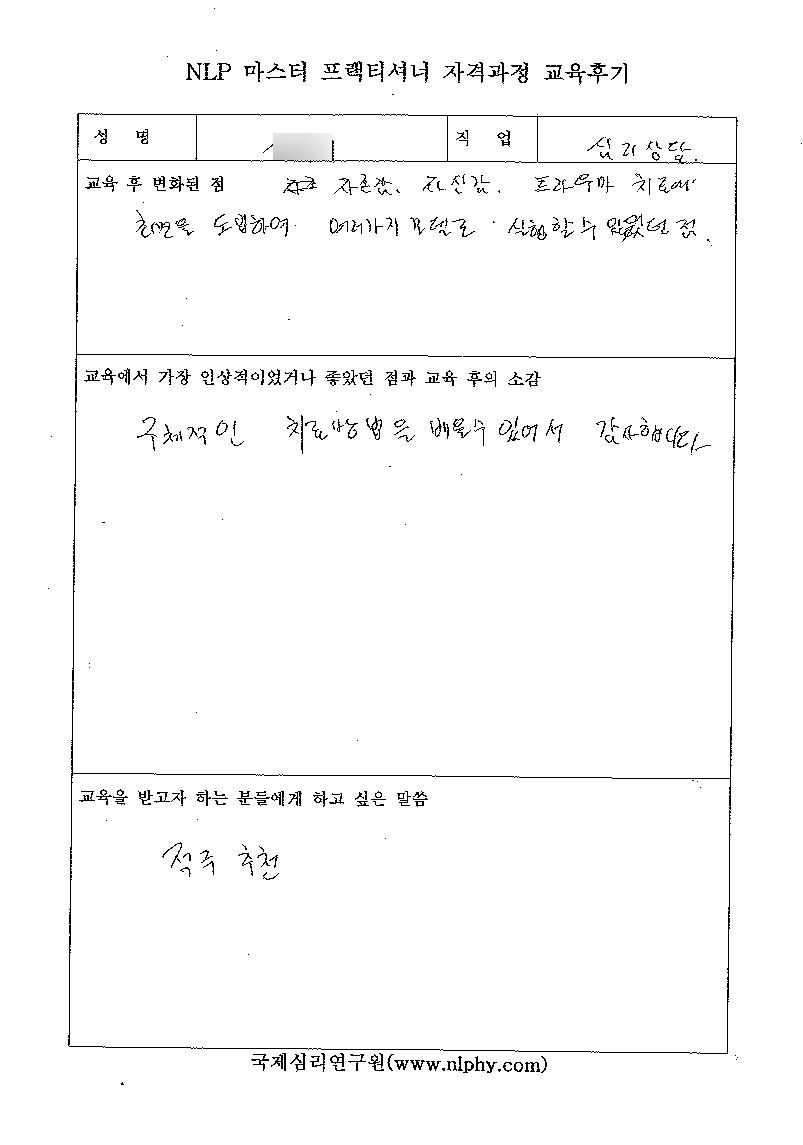 NLP 마스터 프랙티셔너 자격과정 교육후기
성 명
직 업 심리상담.
교육 후 변화된 점 자존감, 자신감, 트라우마 치료에
최면을 도입하여 여러가지 모델로 실험할 수 있었던 점.
교육에서 가장 인상적이었거나 좋았던 점과 교육 후의 소감
구체적인 치료방법을 배울수 있어서 감사합니다
교육을 받고자 하는 분들에게 하고 싶은 말씀
적극 추천
국제심리연구원(www.nlphy.com)